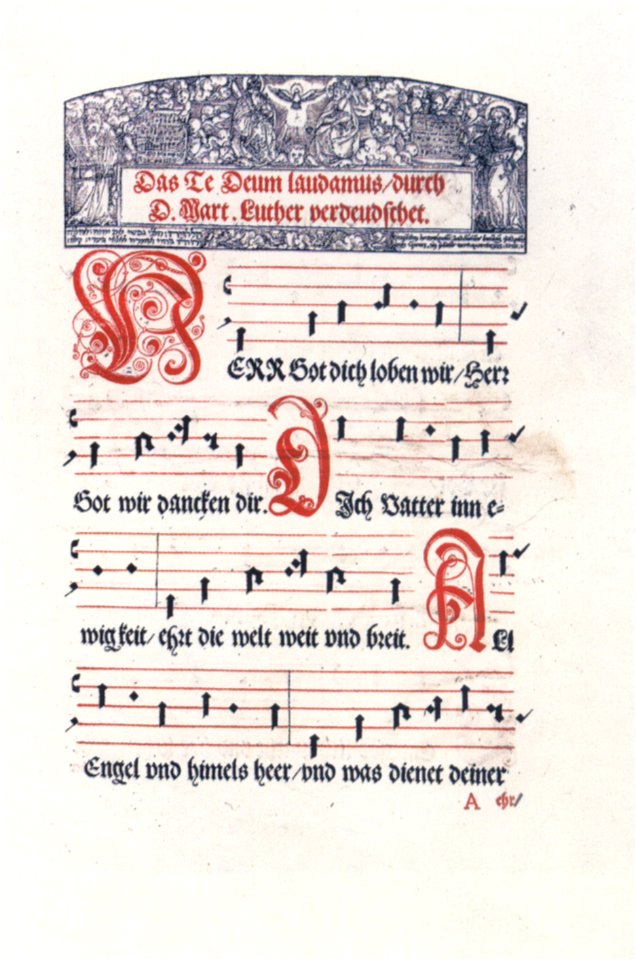 Das Te Deum laudamus/durch
D. Mart. Luther verdeudschet.
HERR Got dich loben wir/Herr
Got wir dancken dir. DIch Vatter inn e-
wigkeit/ehrt die welt weit vnd breit. All
Engel vnd himels heer/vnd was dienet deiner
A ehr/